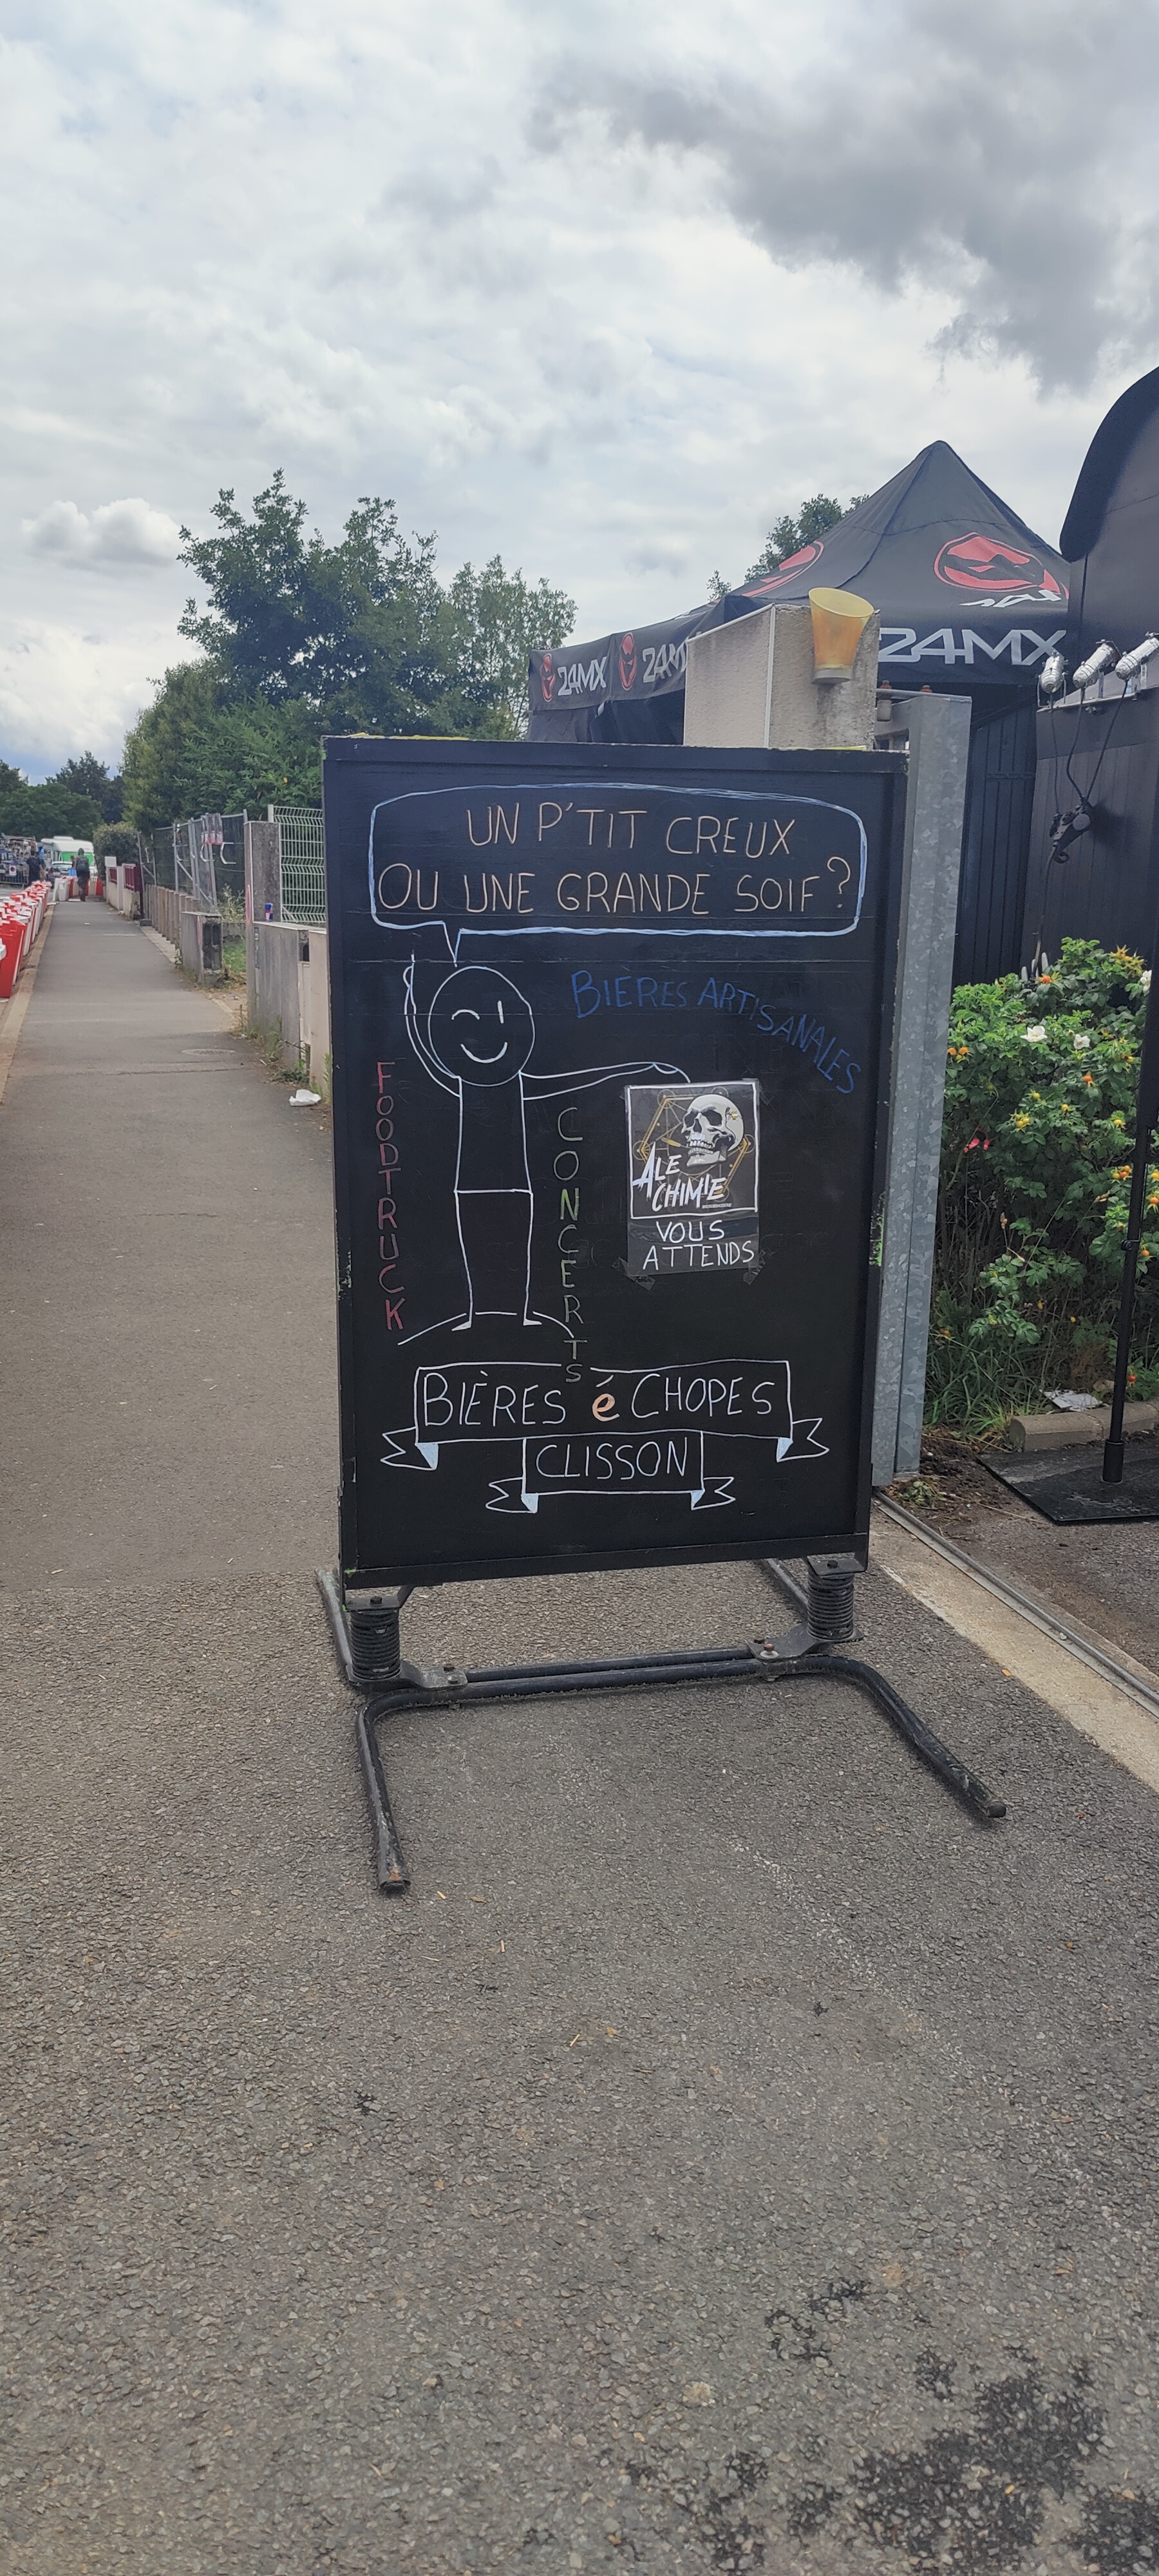 24MX
24MX
24MX
UN P'TIT CREUX
OU UNE GRANDE SOIF ?
BIÈRES ARTISANALES
FOODTRUCK
CONCERTS
ALE
CHIMIE
VOUS
ATTENDS
BIÈRES é CHOPES
CLISSON